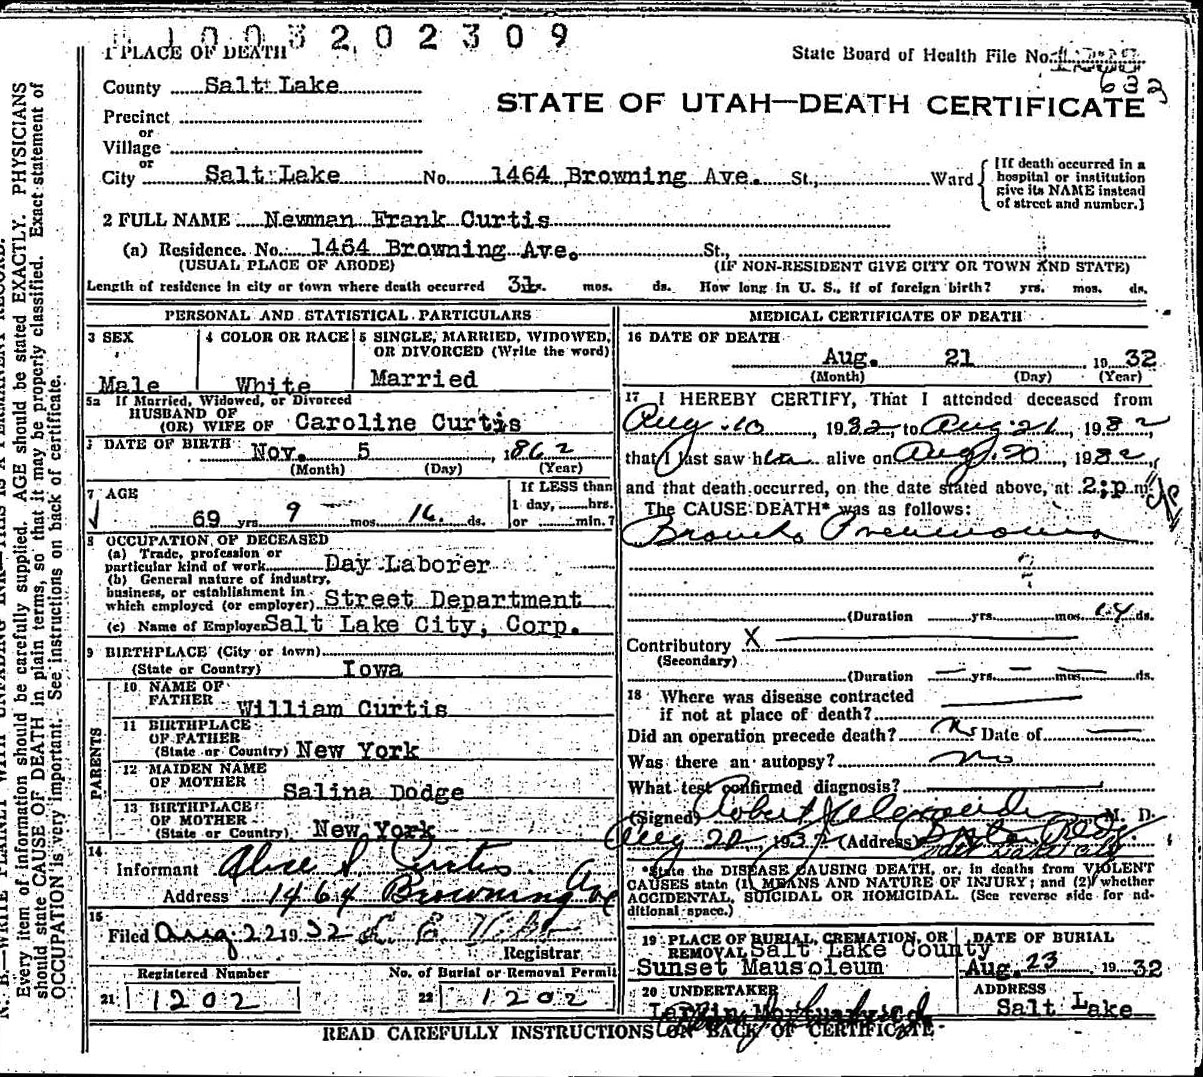 1003202309
1 PLACE OF DEATH
State Board of Health File No.
632
County Salt Lake
STATE OF UTAH—DEATH CERTIFICATE
Precinct
or
Village
or
City Salt Lake No. 1464 Browning Ave. St., Ward
[If death occurred in a hospital or institution give its NAME instead of street and number.]
2 FULL NAME Newman Frank Curtis
(a) Residence. No. 1464 Browning Ave. St.,
(USUAL PLACE OF ABODE) (IF NON-RESIDENT GIVE CITY OR TOWN AND STATE)
Length of residence in city or town where death occurred 31 yrs. mos. ds. How long in U. S., if of foreign birth? yrs. mos. ds.
PERSONAL AND STATISTICAL PARTICULARS
3 SEX
4 COLOR OR RACE
5 SINGLE, MARRIED, WIDOWED, OR DIVORCED (Write the word)
Male White Married
5a If Married, Widowed, or Divorced
HUSBAND OF
(OR) WIFE OF Caroline Curtis
DATE OF BIRTH Nov. 5, 1862
(Month) (Day) (Year)
7 AGE
If LESS than
1 day, hrs.
69 yrs. 9 mos. 16 ds. or min.?
8 OCCUPATION OF DECEASED
(a) Trade, profession or
particular kind of work Day Laborer
(b) General nature of industry,
business, or establishment in
which employed (or employer) Street Department
(c) Name of Employer Salt Lake City, Corp.
9 BIRTHPLACE (City or town)
(State or Country) Iowa
PARENTS
10 NAME OF
FATHER William Curtis
11 BIRTHPLACE
OF FATHER
(State or Country) New York
12 MAIDEN NAME
OF MOTHER Salina Dodge
13 BIRTHPLACE
OF MOTHER
(State or Country) New York
14
Informant Alice S. Curtis
Address 1464 Browning Ave
15
Filed Aug 22 1932
Registrar
Registered Number No. of Burial or Removal Permit
21 1202 22 1202
MEDICAL CERTIFICATE OF DEATH
16 DATE OF DEATH
Aug. 21 1932
(Month) (Day) (Year)
17 I HEREBY CERTIFY, That I attended deceased from
Aug. 10, 1932, to Aug. 21, 1932,
that I last saw him alive on Aug. 20, 1932,
and that death occurred, on the date stated above, at 2:p m.
The CAUSE DEATH* was as follows:
Broncho Pneumonia
(Duration yrs. mos. 14 ds.
Contributory X
(Secondary)
(Duration — yrs. — mos. — ds.
18 Where was disease contracted
if not at place of death?
Did an operation precede death? No Date of —
Was there an autopsy? no
What test confirmed diagnosis?
(Signed) Robert Alexander M. D.
Aug 22, 1932 (Address)
Salt Lake City
*State the DISEASE CAUSING DEATH, or, in deaths from VIOLENT
CAUSES state (1) MEANS AND NATURE OF INJURY; and (2) whether
ACCIDENTAL, SUICIDAL OR HOMICIDAL. (See reverse side for additional space.)
19 PLACE OF BURIAL, CREMATION, OR
REMOVAL Salt Lake County
Sunset Mausoleum
DATE OF BURIAL
Aug. 23 1932
20 UNDERTAKER
Larkin Mortuary Co.
ADDRESS
Salt Lake
READ CAREFULLY INSTRUCTIONS ON BACK OF CERTIFICATE
N. B.—WRITE PLAINLY WITH UNFADING INK—THIS IS A PERMANENT RECORD.
Every item of information should be carefully supplied. AGE should be stated EXACTLY. PHYSICIANS
should state CAUSE OF DEATH in plain terms, so that it may be properly classified. Exact statement of
OCCUPATION is very important. See instructions on back of certificate.